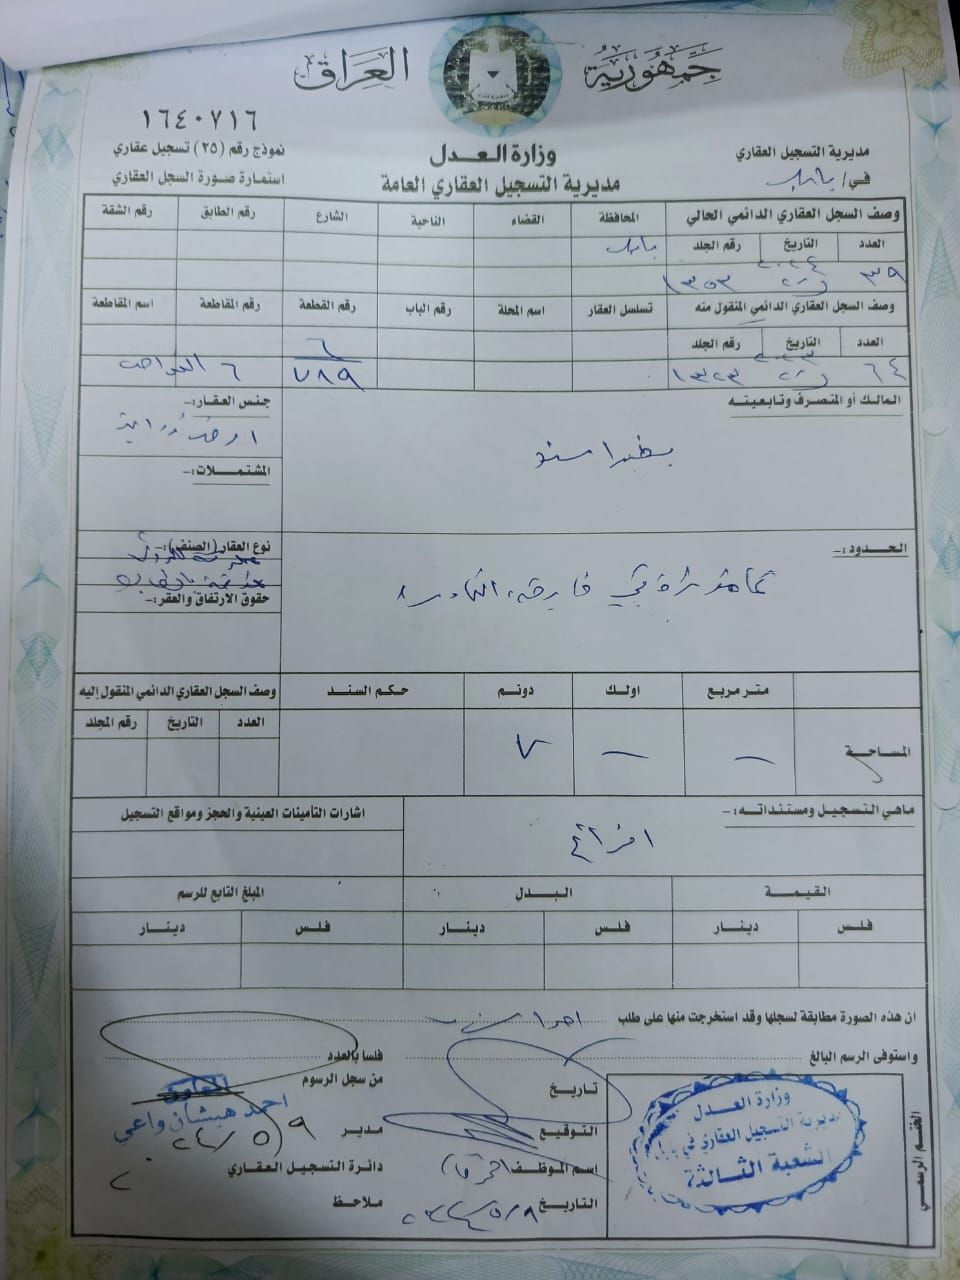 جمهورية العراق
١٦٤٠٧١٦
مديرية التسجيل العقاري
في/ بابل
وزارة العـدل
مديرية التسجيل العقاري العامة
نموذج رقم (٢٥) تسجيل عقاري
استمارة صورة السجل العقاري
وصف السجل العقاري الدائمي الحالي
المحافظة
القضاء
الناحية
الشارع
رقم الطابق
رقم الشقة
العدد
التاريخ
رقم الجلد
بابل
٣٩
٢٠٢٤
١٣٥٣
وصف السجل العقاري الدائمي المنقول منه
تسلسل العقار
اسم المحلة
رقم الباب
رقم القطعة
رقم المقاطعة
اسم المقاطعة
العدد
التاريخ
رقم الجلد
٦٤
٢٠٢٣
١٣٢٣
٦
٧٨٩
٦
المالك أو المتصرف وتابعيته
جنس العقار:-
المشتملات:-
الحدود:-
نوع العقار (الصنف):-
حقوق الارتفاق والعقر:-
متر مربع
اولك
دونم
حكم السند
وصف السجل العقاري الدائمي المنقول إليه
العدد
التاريخ
رقم المجلد
المساحة
–
–
٧
ماهي التسجيل ومستنداته:-
اشارات التأمينات العينية والحجز ومواقع التسجيل
القيمة
البدل
المبلغ التابع للرسم
فلس
دينار
فلس
دينار
فلس
دينار
ان هذه الصورة مطابقة لسجلها وقد استخرجت منها على طلب
واستوفى الرسم البالغ
فلسا بالعدد
تاريخ
من سجل الرسوم
التوقيع
مدير
اسم الموظف
دائرة التسجيل العقاري
التاريخ
٢٠٢٤/٥/٩
ملاحظ
المعاون
احمد هبشان واعي
٢٠٢٤/٥/٩
الختم الرسمي
وزارة العدل
مديرية التسجيل العقاري في بابل
الشعبة الثالثة